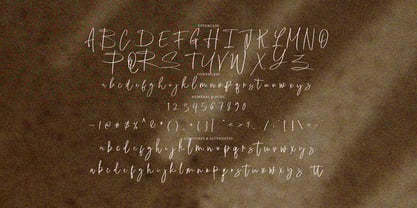 UPPERCASE
ABCDEFGHIJKLMNO
PQRSTUVWXYZ
LOWERCASE
abcdefghijklmnopqrstuvwxyz
NUMERAL & PUNC
1234567890
abcdefghijklmnopqrstuvwxyz
abcdefghijklmnopqrstuvwxyz tt